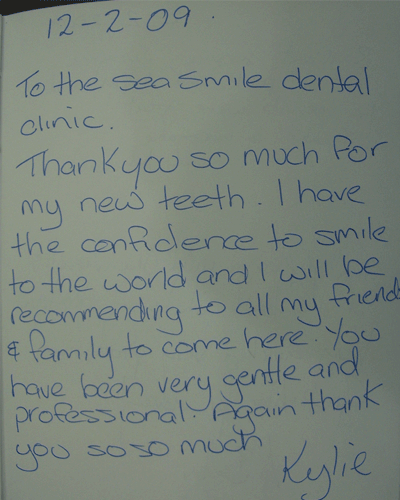 12-2-09.
To the sea smile dental
clinic.
Thankyou so much for
my new teeth. I have
the confidence to smile
to the world and I will be
recommending to all my friends
& family to come here. You
have been very gentle and
professional. Again thank
you so so much
Kylie